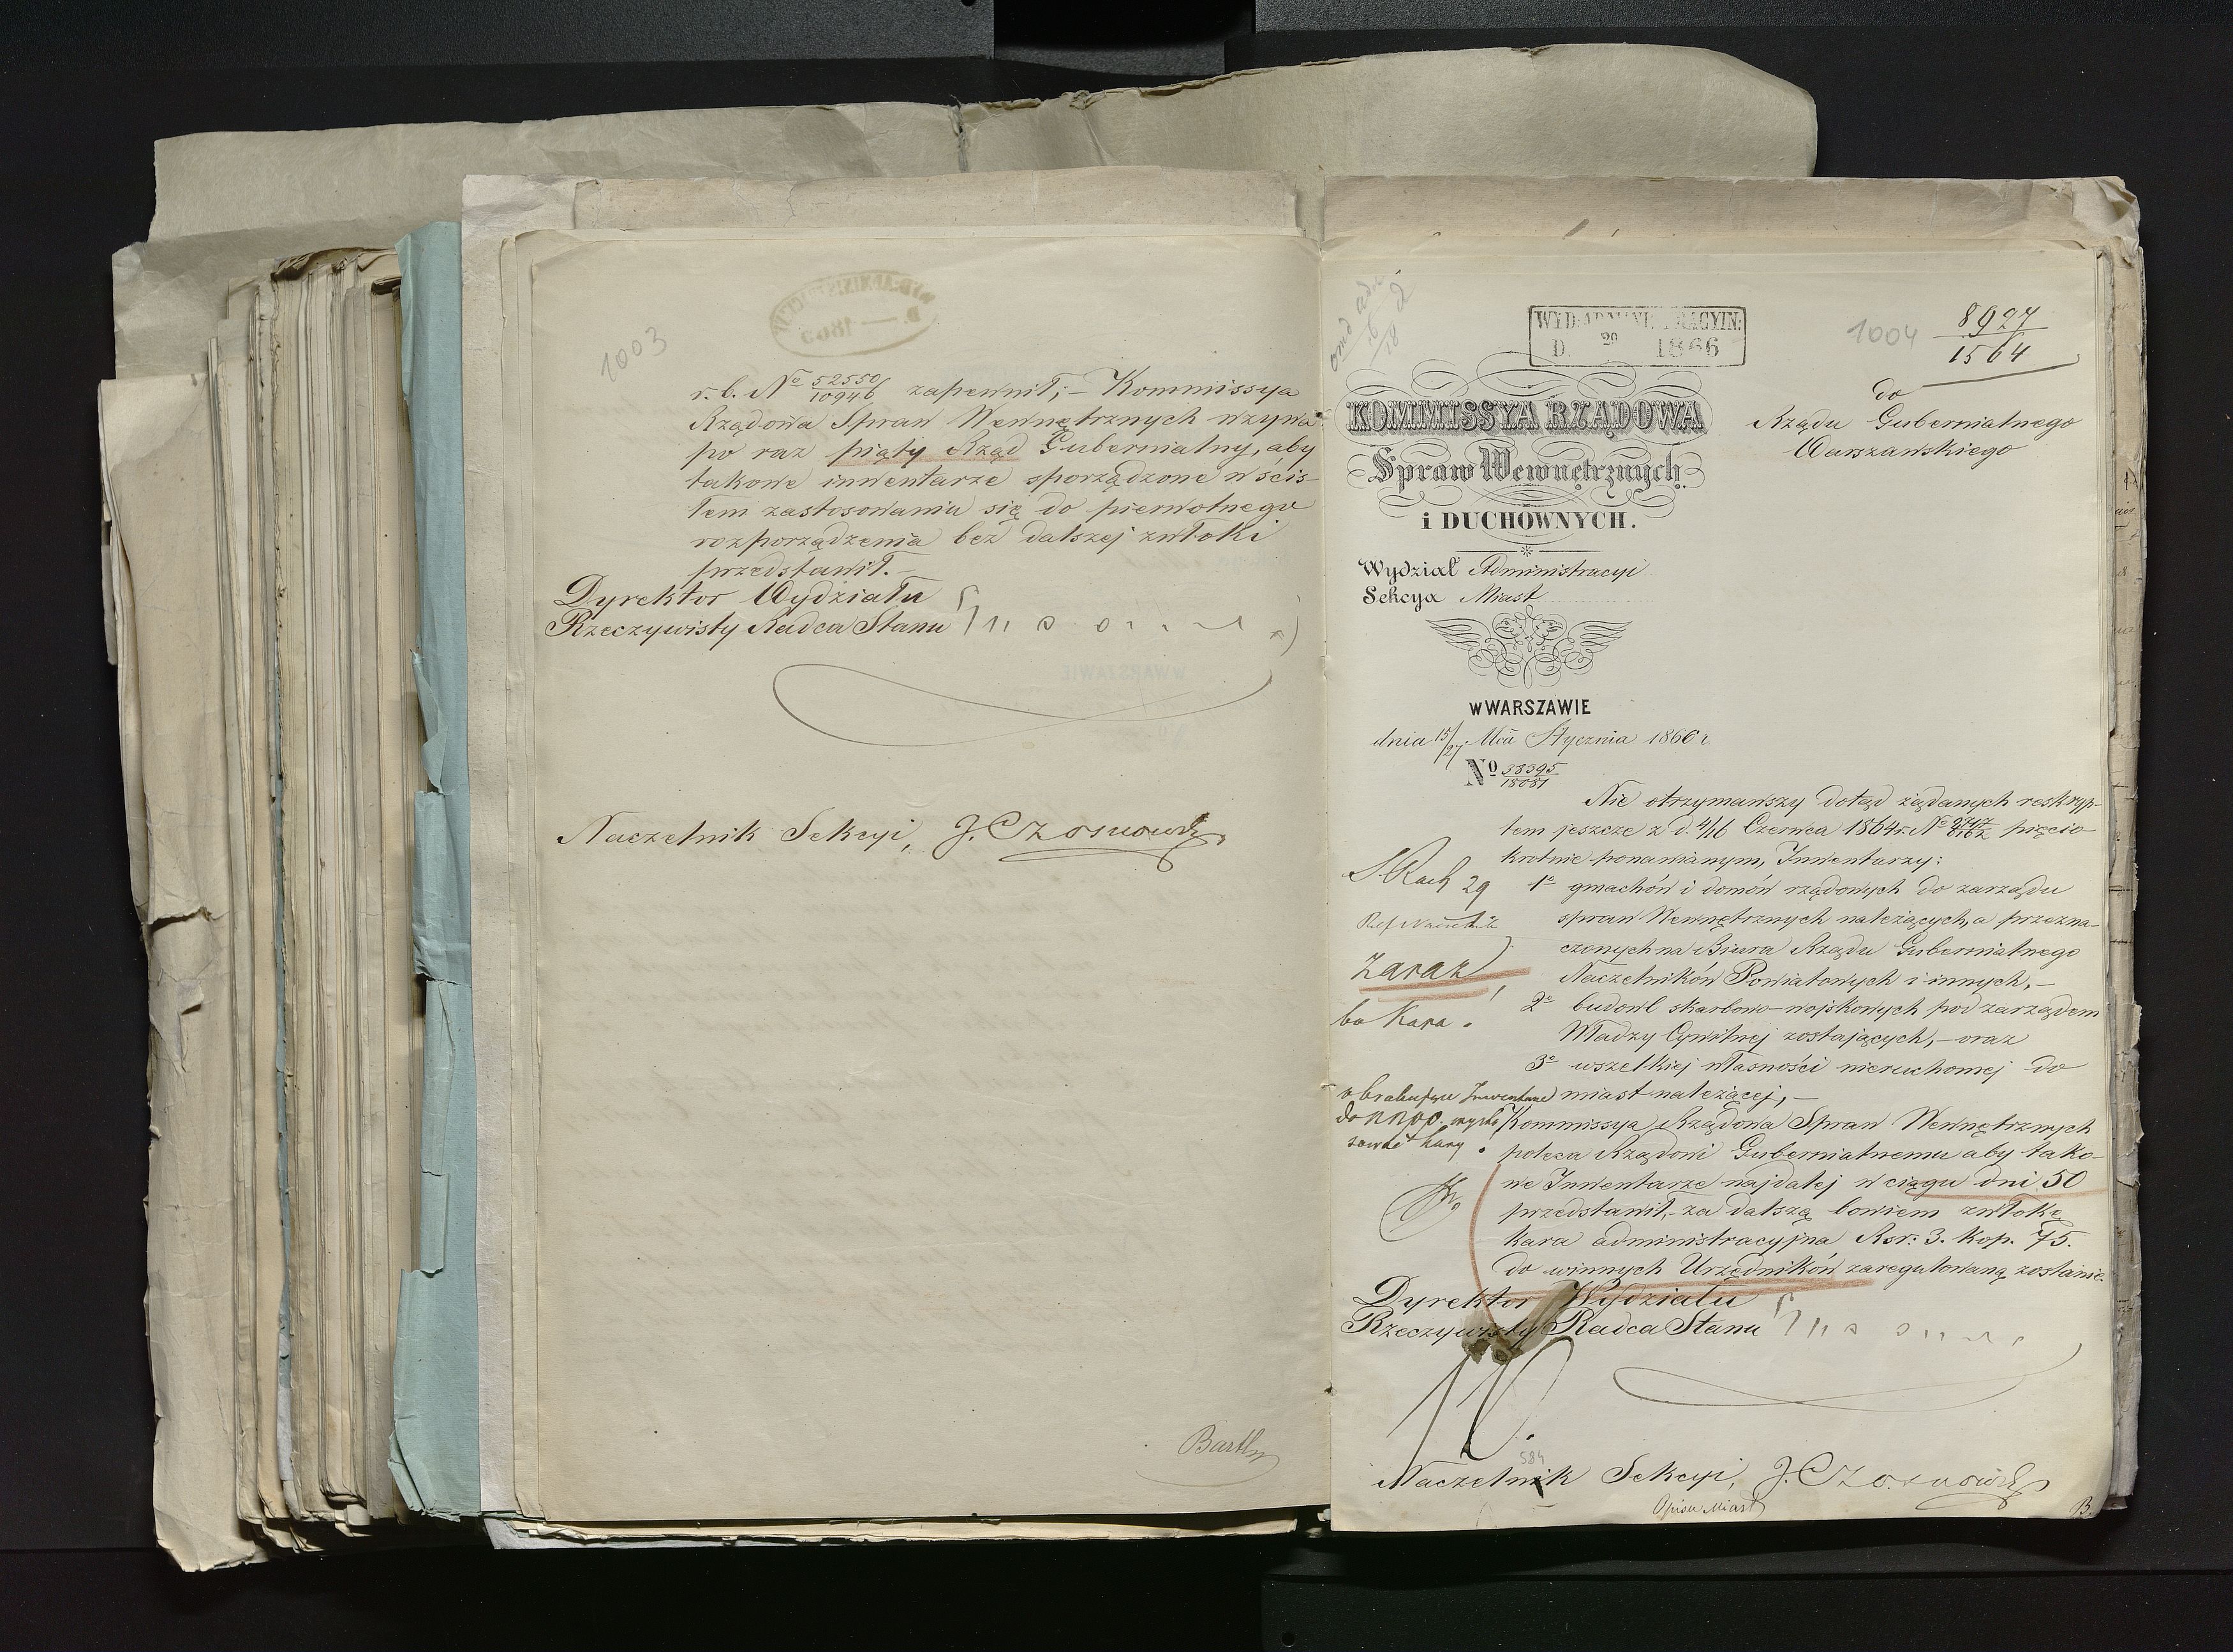 1003
r. b. No 52550/10946 zapewnił; – Kommissya
Rządowa Spraw Wewnętrznych wzywa
po raz piąty Rząd Gubernialny, aby
takowe inwentarze sporządzone w ścis-
łem zastosowaniu się do pierwotnego
rozporządzenia bez dalszej zwłoki
przedstawił. –
Dyrektor Wydziału
Rzeczywisty Radca Stanu
Naczelnik Sekcyi, J. Czosnowski
1004
8927
1564
WYD: ADMINISTRACYJN:
D. 29 1866
do
Rządu Gubernialnego
Warszawskiego
KOMMISSYA RZĄDOWA
Spraw Wewnętrznych
i DUCHOWNYCH.
Wydział Administracyi
Sekcya Miast
w WARSZAWIE
dnia 15/27 Mca Stycznia 1866 r.
No 38395/18081
Nie otrzymawszy dotąd żądanych reskryp-
tem jeszcze z d. 4/16 Czerwca 1864 r. No pięcio-
krotnie ponawianym, Inwentarzy:
1o gmachów i domów rządowych do zarządu
spraw Wewnętrznych należących, a przezna-
czonych na Biura Rządu Gubernialnego
Naczelników Powiatowych i innych, –
2o budowl skarbowo-wojskowych pod zarządem
Władzy Cywilnej zostających, – oraz
3o wszelkiej własności nieruchomej do
miast należącej, –
Kommissya Rządowa Spraw Wewnętrznych
poleca Rządowi Gubernialnemu aby tako-
we Inwentarze najdalej w ciągu dni 50
przedstawił, – za dalszą bowiem zwłokę
kara administracyjna Rsr: 3. Kop. 75.
do winnych Urzędników zaregulowaną zostanie.
29
Zaraz
bo Kara.
Dyrektor Wydziału
Rzeczywisty Radca Stanu
584
Naczelnik Sekcyi, J. Czosnowski
Opisu Miast
B.